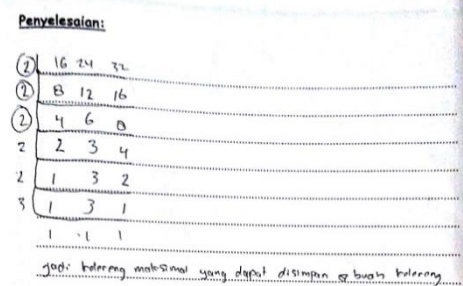 Penyelesaian:
2 16 24 32
2 8 12 16
2 4 6 8
2 2 3 4
2 1 3 2
3 1 3 1
1 1 1
jadi kelereng maksimal yang dapat disimpan 8 buah kelereng